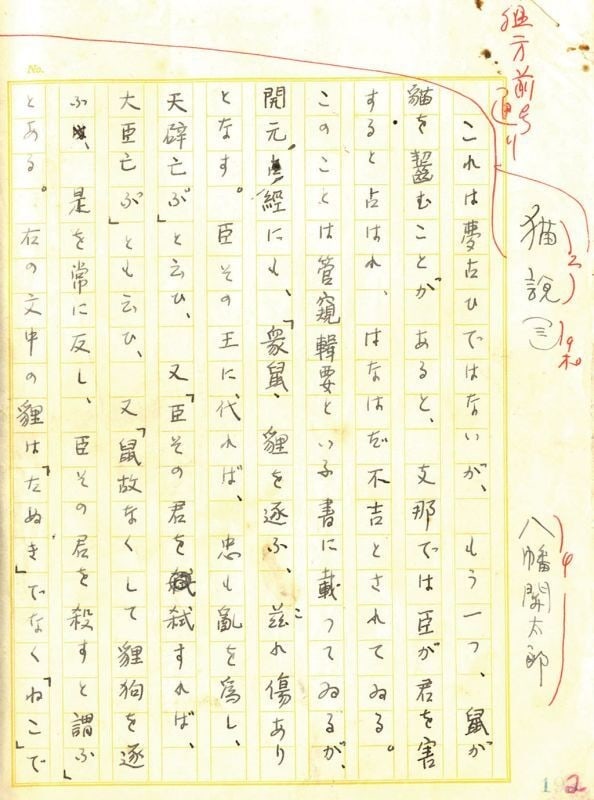 組方前号
通り
猫説 (三)
八幡関太郎
これは夢占ひではないが、もう一つ、鼠が
猫を齧むことがあると、支那では臣が君を害
すると占はれ、はなはだ不吉とされてゐる。
このことは管窺輯要といふ書に載つてゐるが、
開元占経にも、「衆鼠、貍を逐ふ、茲れ傷あり
となす。臣その王に代れば、忠も亂を為し、
天辟亡ぶ」と云ひ、又「臣その君を弑すれば、
大臣亡ぶ」とも云ひ、又「鼠故なくして貍狗を逐
ふ、是を常に反し、臣その君を殺すと謂ふ」
とある。右の文中の貍は「たぬき」でなく「ねこ」で
No.
192